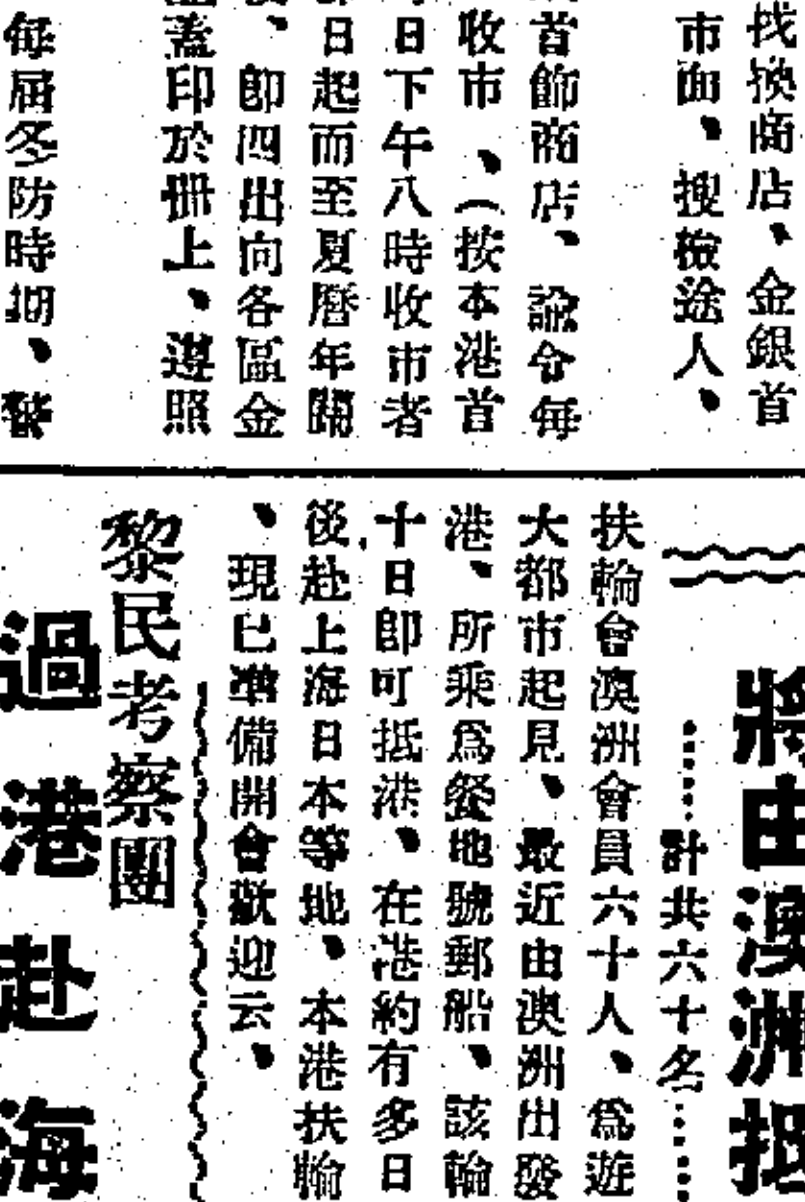 找換商店、金銀首
市面、搜檢途人、
首飾商店、諭令每
收市、（按本港首
日下午八時收市者
日起而至夏曆年關
、即四出向各區金
蓋印於冊上、遵照
每屆冬防時期、警
將由澳洲抵
⋯⋯計共六十名⋯⋯
扶輪會澳洲會員六十人、爲遊
大都市起見、最近由澳洲出發
港、所乘爲 地號郵船、該輪
十日即可抵港、在港約有多日
後赴上海日本等地、本港扶輪
、現已準備開會歡迎云、
黎民考察團
過港赴海